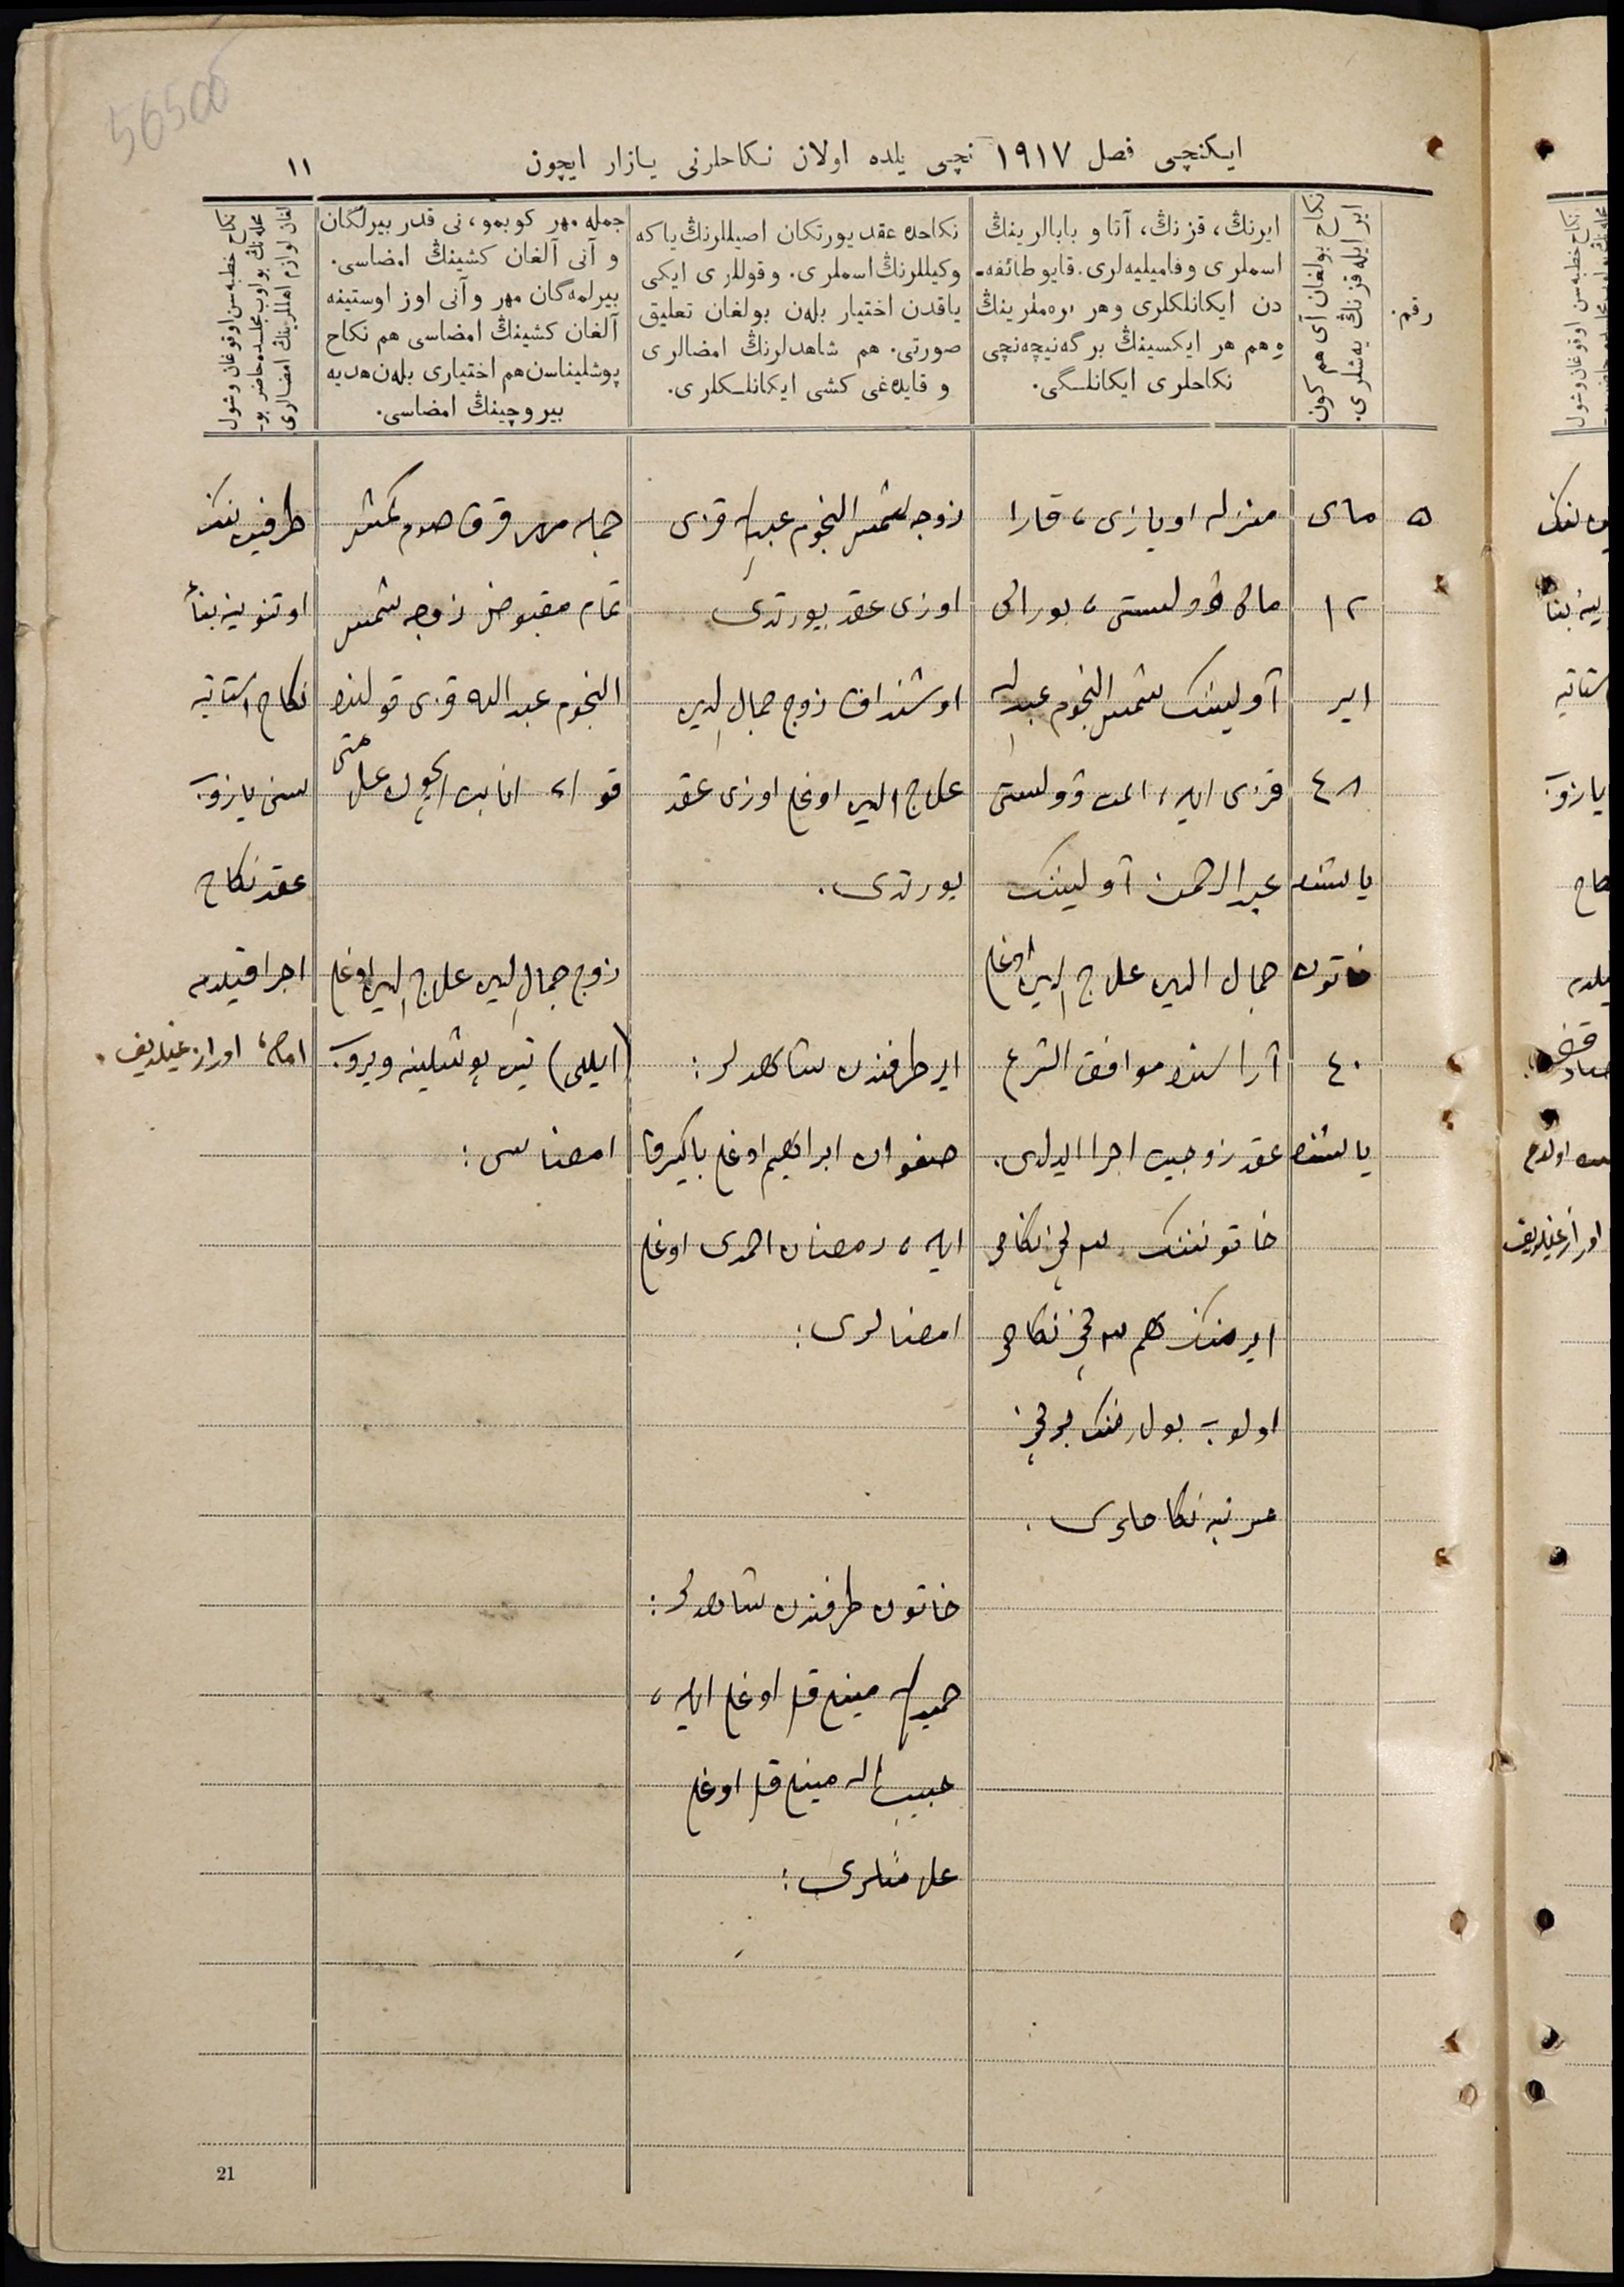 56500
ایکنچی فصل ١٩١٧ نچی یلده اولان نکاحلرنی یازار ایچون
١١
رقم.
نکاح بولغان آی هم کون
ایر ایله قزنڭ یه‌شلری.
ایرنڭ، قزنڭ، آتا و بابالرینڭ
اسملری وفامیلیه‌لری. قایو طائفه‌ـ
دن ایکانلکلری وهر
هم هر ایکسینڭ برگه‌نیچه‌نچی
نکاحلری ایکانلـگی.
نکاحده عقد یورتکان اصیللرنڭ یاکه
وکیللرنڭ اسملری. وقوللری ایکی
یاقدن اختیار بله‌ن بولغان تعلیق
صورتی. هم شاهدلرنڭ امضالری
و قایده‌غی کشی ایکانلـکلری.
جمله مهر کوبمو، نی قدر بیرلگان
و آنی آلغان کشینڭ امضاسی.
بیرلمه‌گان مهر وآنی اوز اوستینه
آلغان کشینڭ امضاسی هم نکاح
پوشلیناسن هم اختیاری بله‌ن هدیه
بیروچینڭ امضاسی.
نکاح خطبه‌سن اوقوغان وشول
محله‌نڭ بولوب مجلسده حاضر بو
لغان لوازم اهللرینڭ امضالری
٥
مای
١٢
ایر
٤٨
یاشنده
خاتون
٤٠
یاشنده
منزله اویازی، قارا
مای وولستی، بورالی
آولینڭ شمس النجوم عبدالله
قزی ایله، المت وولستی
عبدالرحمن آولینڭ
جمال الدین علاج الدین اوغلی
آراسنده موافق الشرع
عقد زوجیت اجرا ایدلدی.
خاتوننڭ ٢ نچی نکاحی
ایرننڭ هم ٢ نچی نکاحی
اولوب بولارننڭ برنچی
مرتبه نکاحلری.
زوجه شمس النجوم عبدالله قزی
اوزی عقد یورتدی
اوشنداق زوج جمال الدین
علاج الدین اوغلی اوزی عقد
یورتدی.
ایر طرفندن شاهدلر:
صفوان ابراهیم اوغلی باکیرف
ایله، رمضان احمدی اوغلی
امضالری:
خاتون طرفندن شاهدلر:
حمیدالله مینلی قل اوغلی ایله،
حبیب الله مینلی قل اوغلی
علامتلری:
جمله مهر قرق صوم کمش
تمام مقبوض زوجه شمس
النجوم عبدالله قزی قولنده
قوله انابت ایچون علامتی
زوج جمال الدین علاج الدین اوغلی
(ایللی) تین پوشلینه ویروب
امضاسی:
طرفیننڭ
اوتنوینه بناءً
نکاح استاتیه
سنی یازوب
عقد نکاح
اجرا قیلدم
امام، اورازغیلدیف.
21